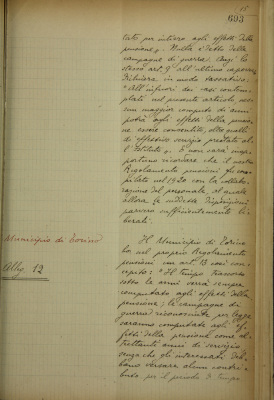 15
603
tato per intiero agli effetti della
pensione. Nulla è detto delle
campagne di guerra. Anzi lo
stesso art. 9 all'ultimo capoverso
dichiara in modo tassativo:
"All'infuori dei casi contem-
plati nel presente articolo nes-
sun maggior computo di anni
potrà agli effetti della pensio-
ne essere consentito, oltre quelli
di effettivo servizio prestato al-
l'Istituto". E non sarà inop-
portuno ricordare che il nostro
Regolamento pensioni fu com-
pilato nel 1920 con la collabo-
razione del personale, al quale
allora le suddette disposizioni
parvero sufficientemente li-
berali.
Municipio di Torino
Alleg. 12
Il Municipio di Torino
ha nel proprio Regolamento
pensioni un art. 13 così con-
cepito: "Il tempo trascorso
sotto le armi verrà sempre
computato agli effetti della
pensione; le campagne di
guerra riconosciute per legge
saranno computate agli ef-
fetti della pensione come al-
trettanti anni di servizio,
senza che gli interessati deb-
bano versare alcun contri-
buto per il periodo di tempo